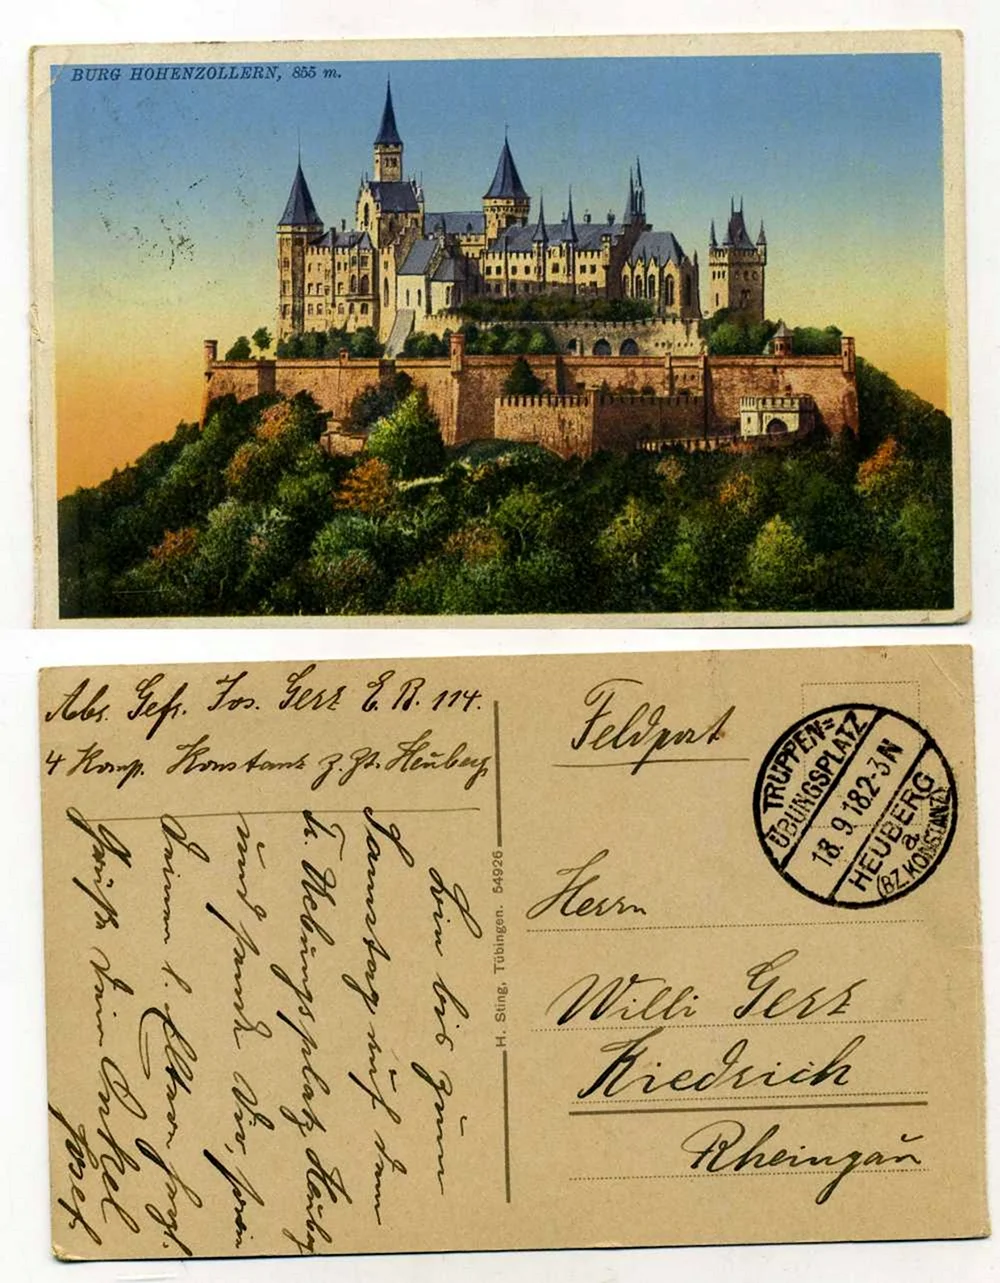 BURG HOHENZOLLERN, 855 m.
Abs. Gefr. Jos. Gerz E. B. 114.
4 Komp. Konstanz z. Zt. Heuberg
Feldpost
TRUPPEN=
ÜBUNGSPLATZ
18.9 18.2-3N
HEUBERG
a.
(BZ. KONSTANZ)
Herrn
Willi Gerz
Kiedrich
Rheingau
H. Sting, Tübingen. 54926
bin bis zum
Samstag auf dem
Tr. Uebungsplatz Heuberg
und sende Dir, sowie
Deinen l. Eltern herzl.
Grüße Dein Onkel
Josef.